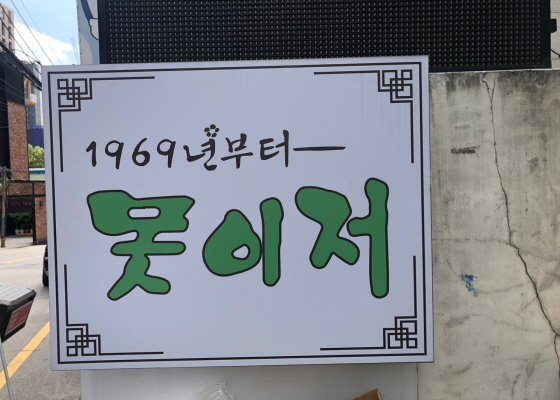 1969년부터—
못이저